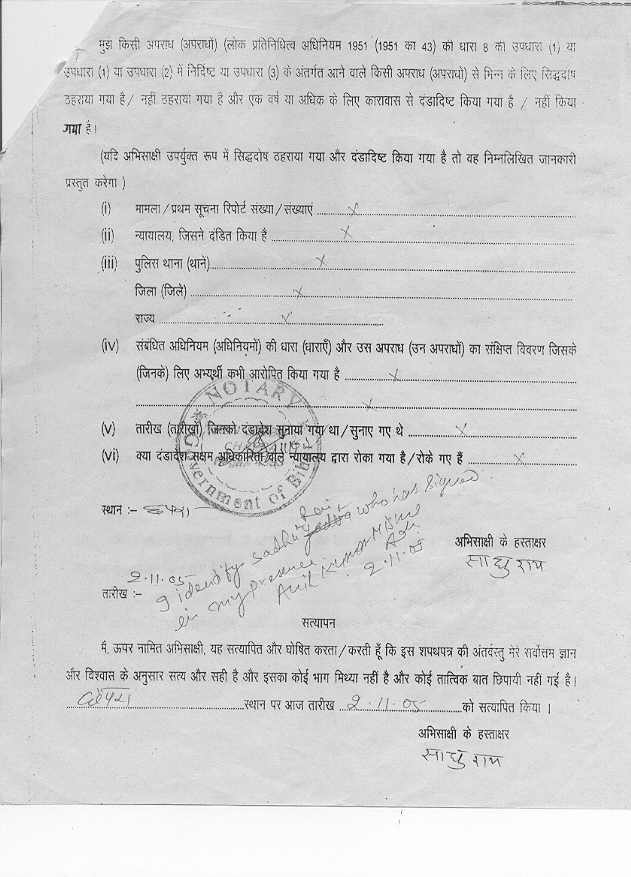 मुझ किसी अपराध (अपराधों) (लोक प्रतिनिधित्व अधिनियम 1951 (1951 का 43) की धारा 8 की उपधारा (1) या
उपधारा (1) या उपधारा (2) में निर्दिष्ट या उपधारा (3) के अंतर्गत आने वाले किसी अपराध (अपराधों) से भिन्न के लिए सिद्धदोष
ठहराया गया है / नहीं ठहराया गया है और एक वर्ष या अधिक के लिए कारावास से दंडादिष्ट किया गया है / नहीं किया
गया है।
(यदि अभिसाक्षी उपर्युक्त रूप में सिद्धदोष ठहराया गया और दंडादिष्ट किया गया है तो वह निम्नलिखित जानकारी
प्रस्तुत करेगा )
(i) मामला / प्रथम सूचना रिपोर्ट संख्या / संख्याएं ........ x ........
(ii) न्यायालय, जिसने दंडित किया है ........ x ........
(iii) पुलिस थाना (थाने) ........ x ........
जिला (जिले) ........ x ........
राज्य ........ x ........
(iv) संबंधित अधिनियम (अधिनियमों) की धारा (धाराएँ) और उस अपराध (उन अपराधों) का संक्षिप्त विवरण जिसके
(जिनके) लिए अभ्यर्थी कभी आरोपित किया गया है ........ x ........
........ x ........
NOTARY
Government of Bihar
(v) तारीख (तारीखों) जिनको दंडादेश सुनाया गया था / सुनाए गए थे ........ x ........
(vi) क्या दंडादेश सक्षम अधिकारिता वाले न्यायालय द्वारा रोका गया है / रोके गए हैं ........ x ........
स्थान :- छपरा
I identify Sadhu Rai who has signed
in my presence
Anil Kumar
Adv.
2.11.05
अभिसाक्षी के हस्ताक्षर
साधु राय
तारीख :- 2.11.05
सत्यापन
मैं, ऊपर नामित अभिसाक्षी, यह सत्यापित और घोषित करता / करती हूँ कि इस शपथपत्र की अंतर्वस्तु मेरे सर्वोत्तम ज्ञान
और विश्वास के अनुसार सत्य और सही है और इसका कोई भाग मिथ्या नहीं है और कोई तात्विक बात छिपायी नही गई है।
छपरा ........ स्थान पर आज तारीख ... 2.11.05 ........ को सत्यापित किया ।
अभिसाक्षी के हस्ताक्षर
साधु राय